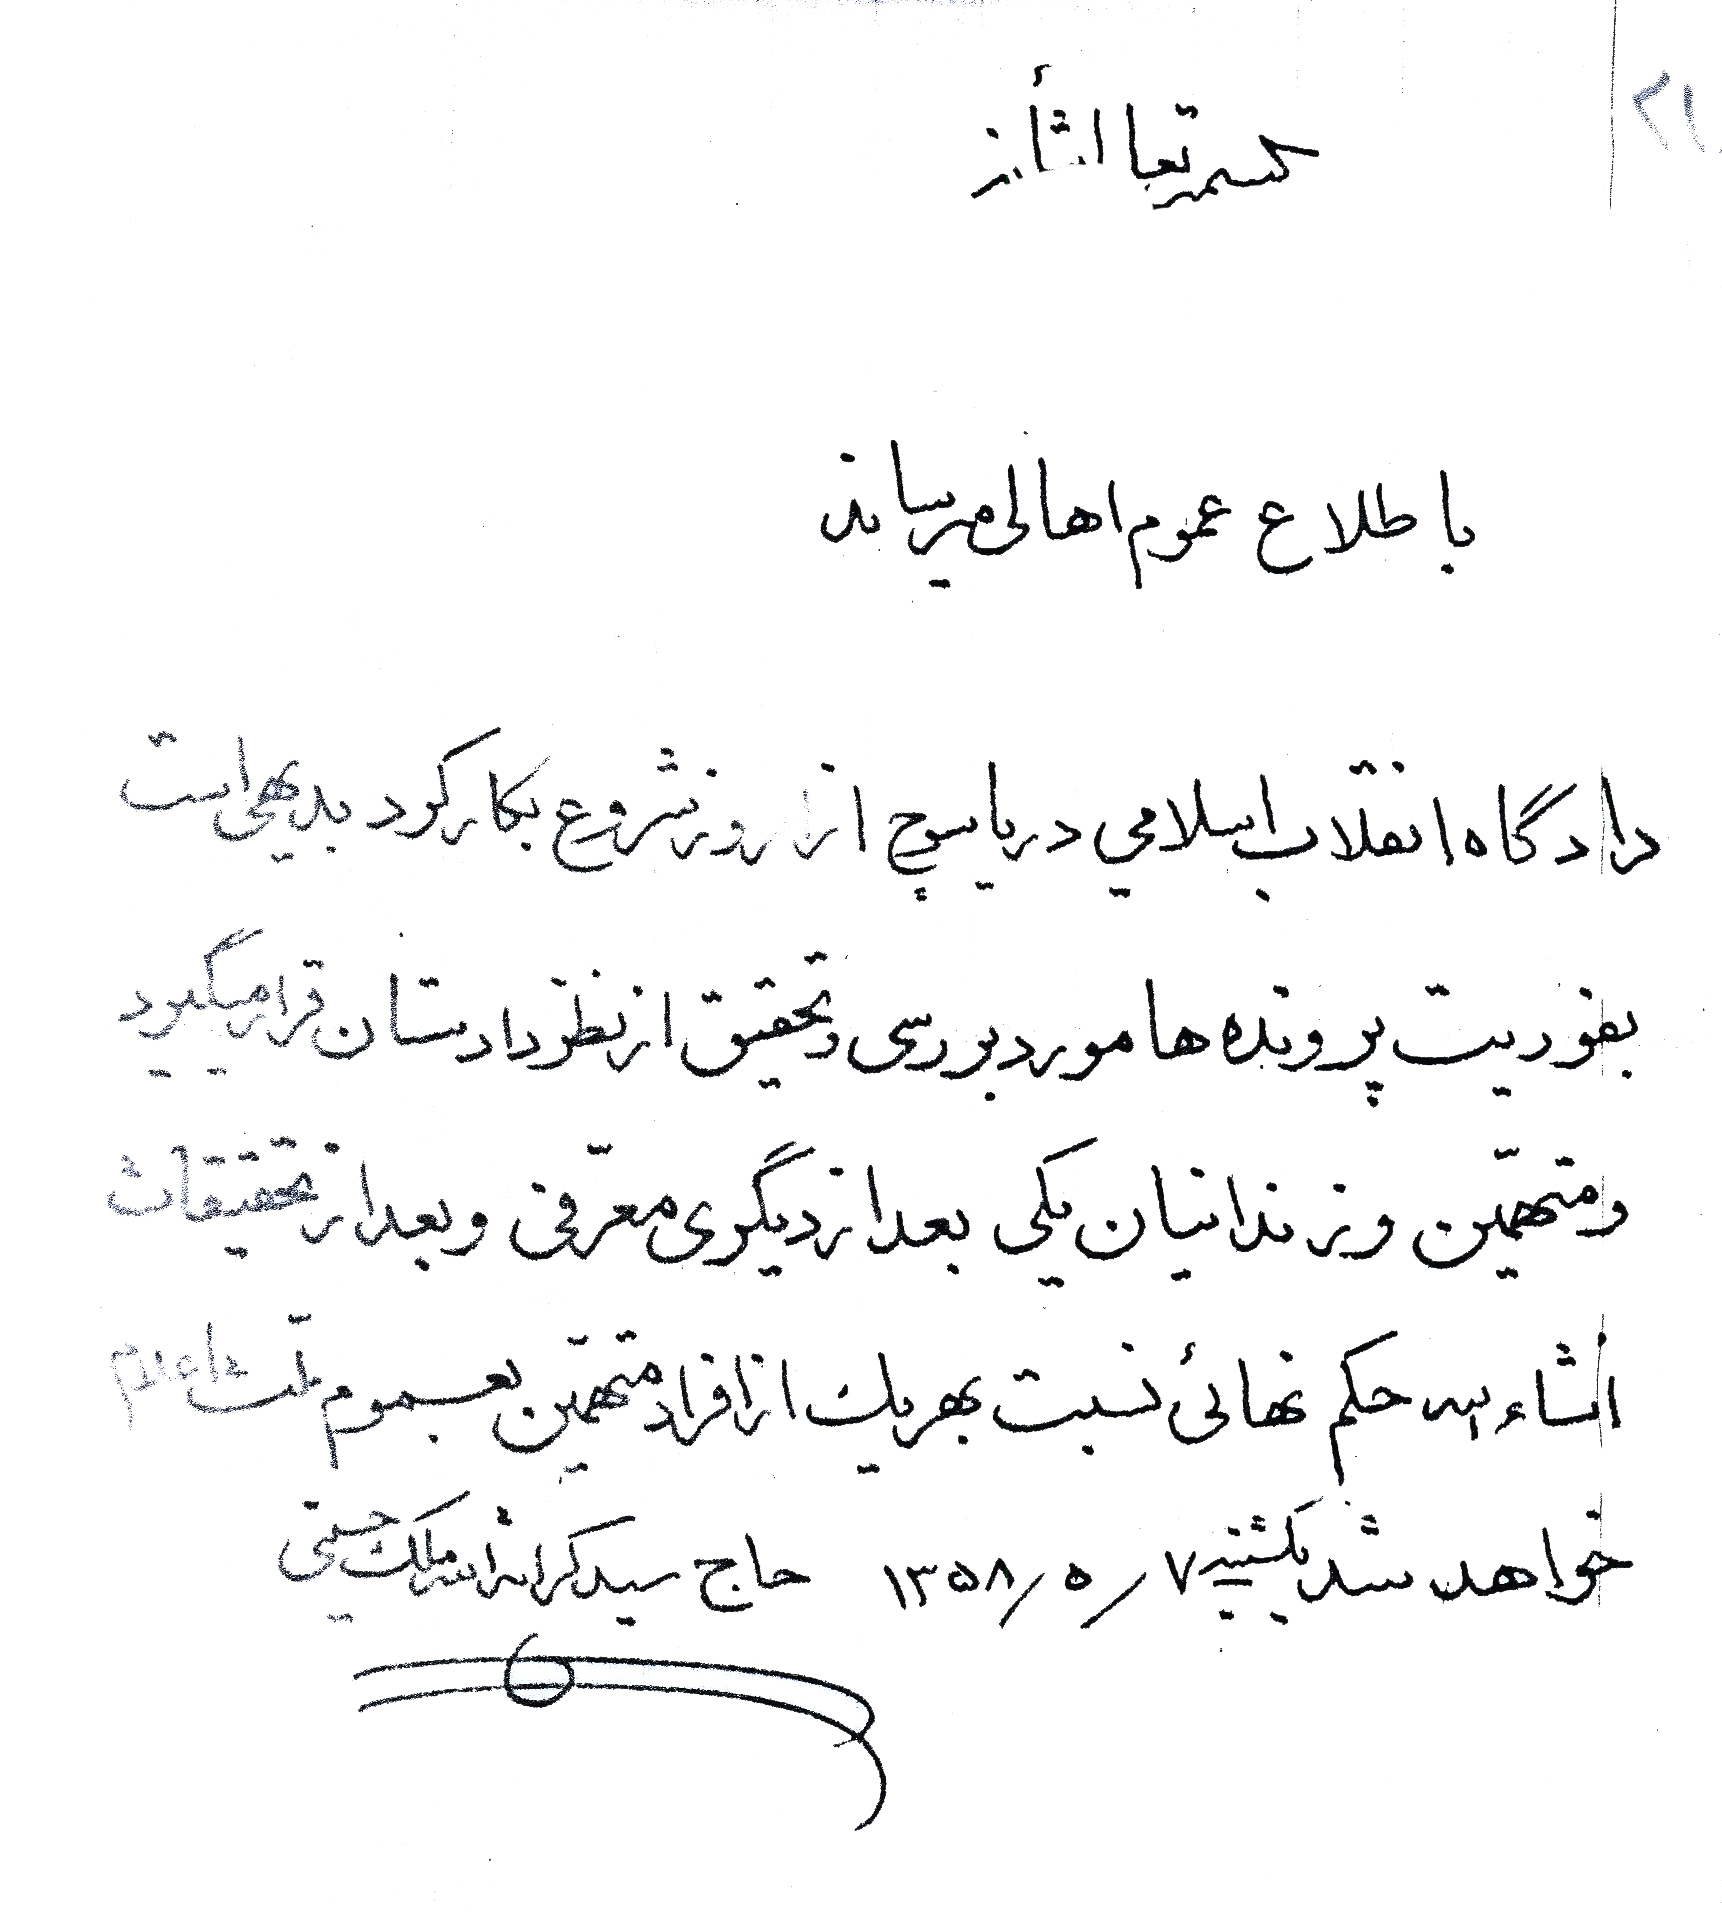 ۲۱
بسمه تعالی شأنه
باطلاع عموم اهالی میرساند
دادگاه انقلاب اسلامی در یاسوج از امروز شروع بکار کرد بدیهی است
بفوریت پرونده ها مورد بررسی و تحقیق از نظر دادستان قرار میگیرد
و متهمّین و زندانیان یکی بعد از دیگری معرّفی و بعد از تحقیقات
انشاء الله حکم نهائی نسبت بهر یک از افراد متهمّین بعموم ملّت اعلام
خواهد شد یکشنبه ۷ / ۵ / ۱۳۵۸ حاج سید کرامت الله ملک حسینی